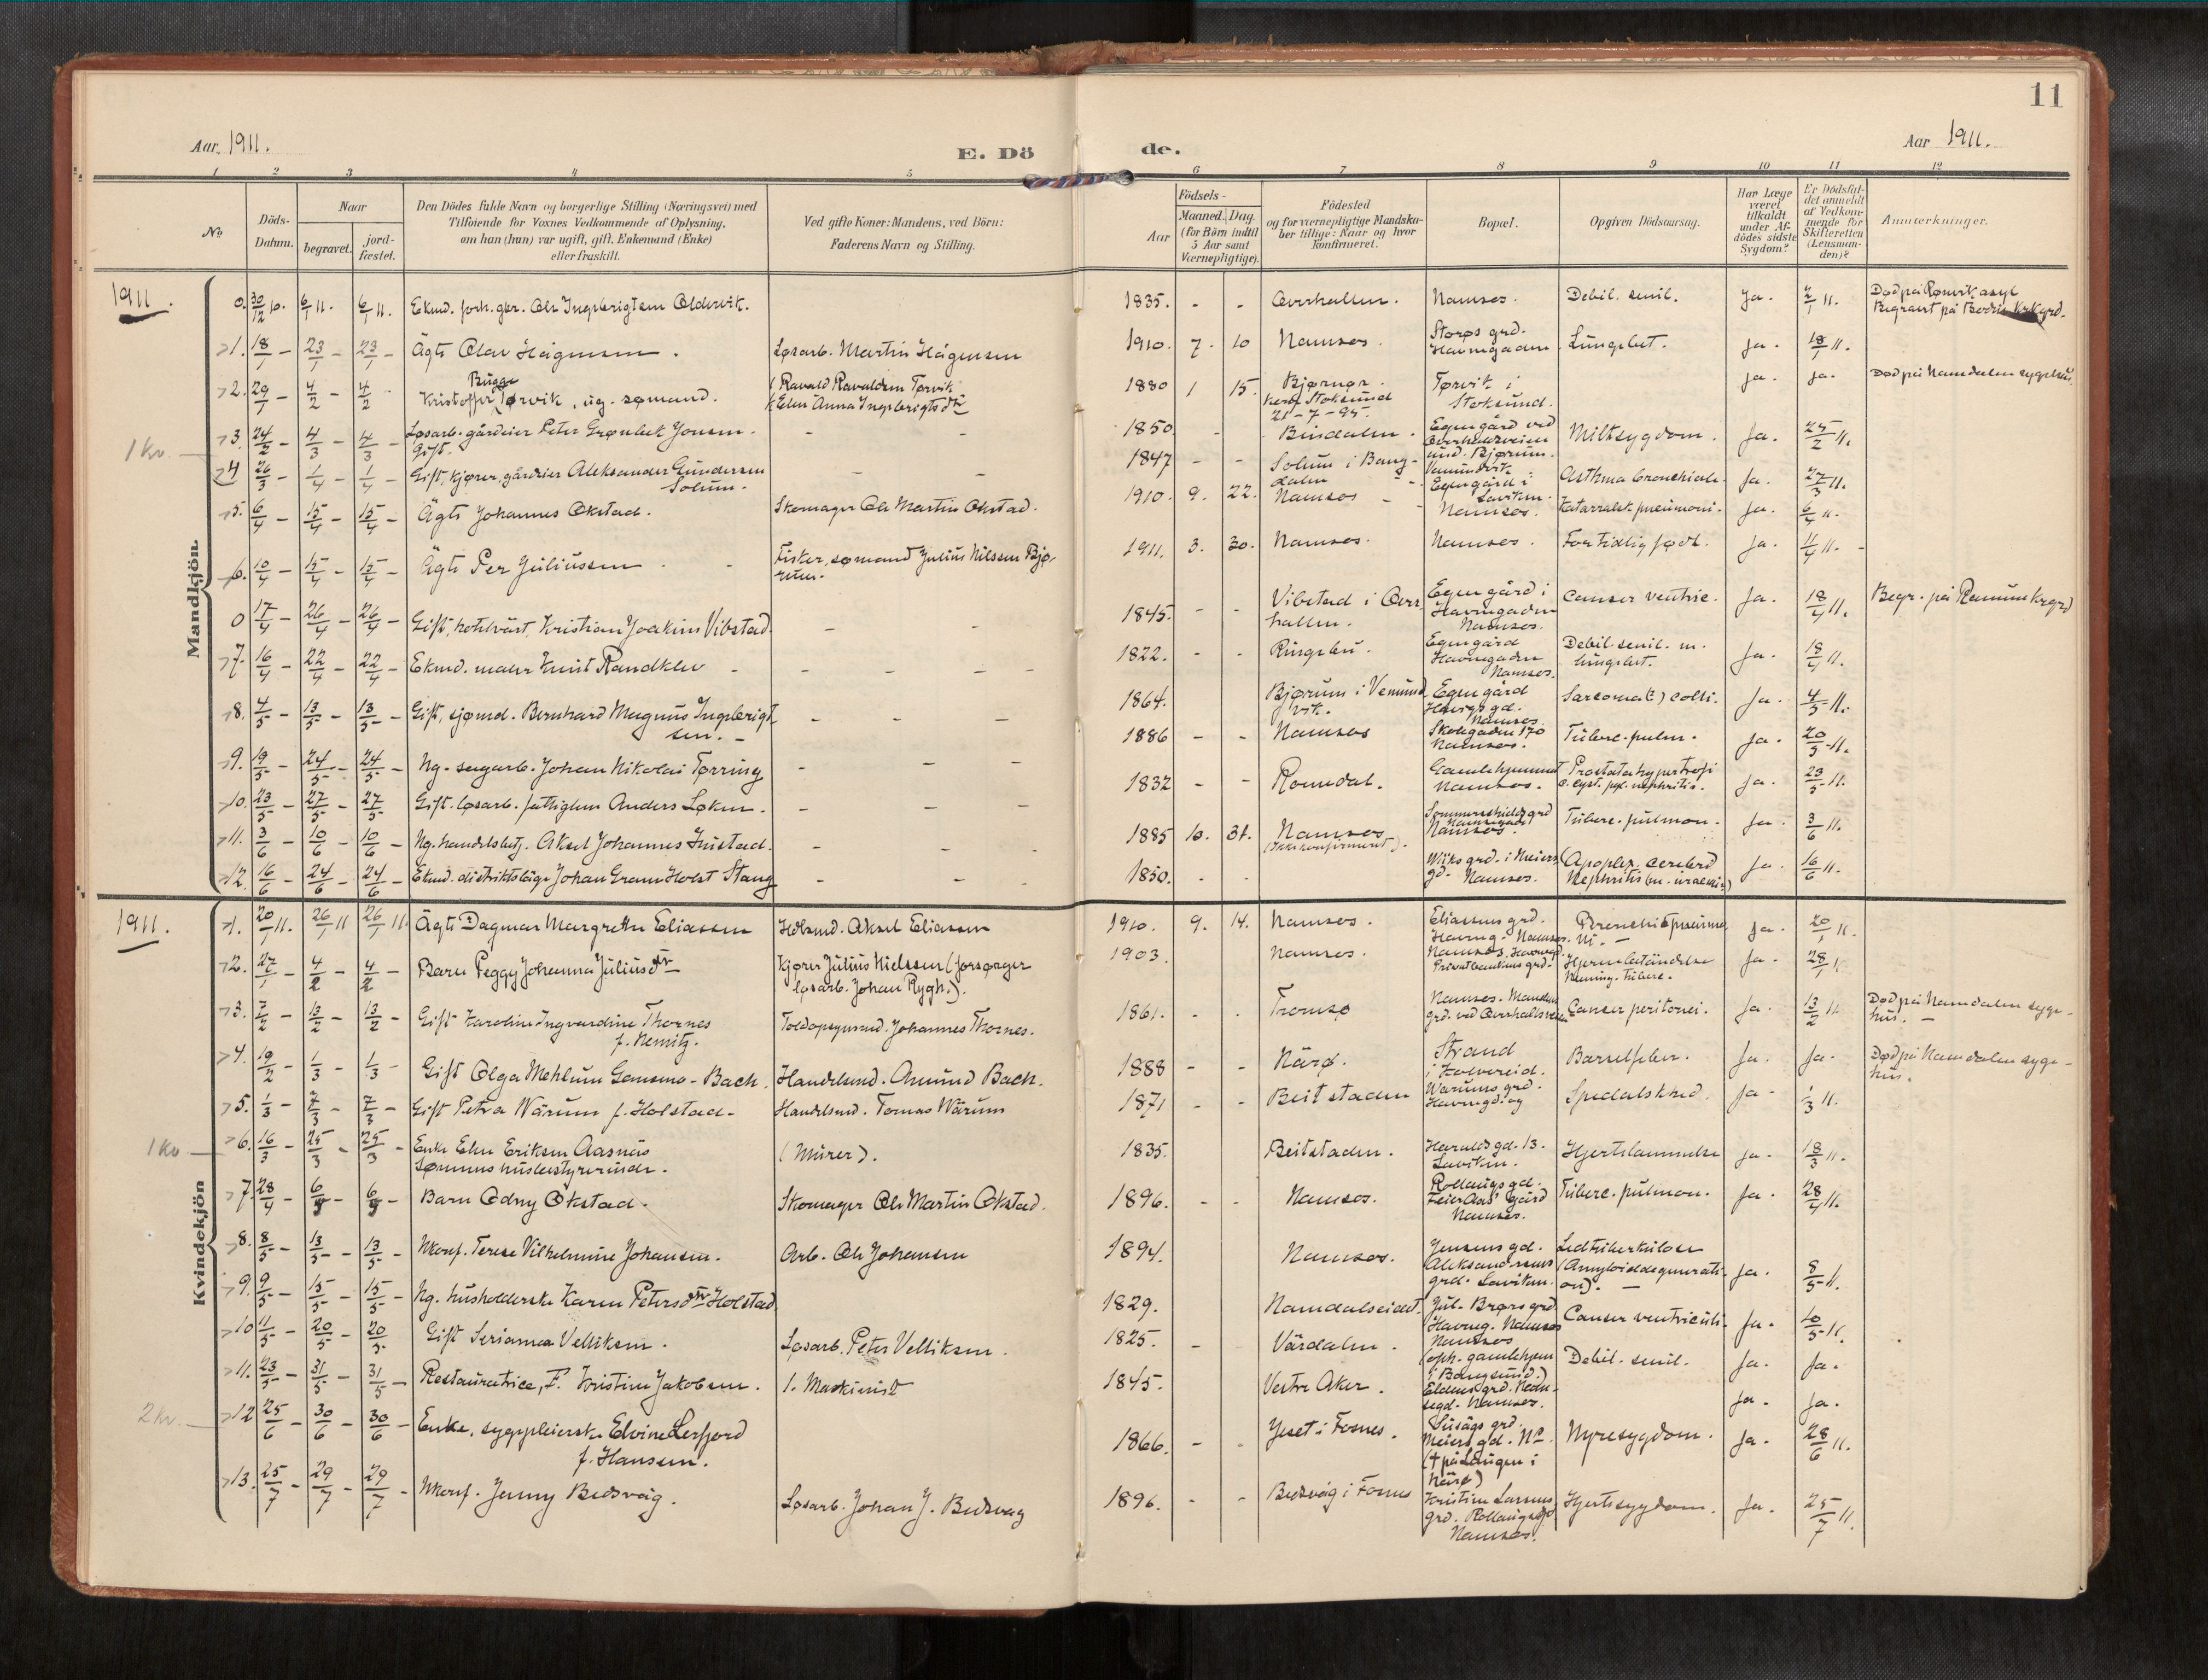 11
Aar 1911.
E. Dö
de.
Aar 1911.
1 2 3 4 5 6 7 8 9 10 11 12
No
Döds-
Datum.
Naar
begravet.
jord-
fæstet.
Den Dödes fulde Navn og borgerlige Stilling (Næringsvei) med
Tilföiende for Voxnes Vedkommende af Oplysning,
om han (hun) var ugift, gift, Enkemand (Enke)
eller fraskilt.
Ved gifte Koner: Mandens, ved Börn:
Faderens Navn og Stilling.
Födsels-
Aar
Maaned. Dag.
(for Börn indtil
5 Aar samt
Værnepligtige).
Födested
og for værnepligtige Mandska-
ber tillige: Naar og hvor
konfirmeret.
Bopæl.
Opgiven Dödsaarsag.
Har Læge
været
tilkaldt
under Af-
dödes sidste
Sygdom?
Er Dödsfal-
det anmeldt
af Vedkom-
mende for
Skifteretten
(Lensman-
den)?
Anmærkninger.
1911.
Mandkjön.
0. 30/12 10. 6/1 11. 6/1 11. Ekmd. forh. gbr. Ole Ingebrigtsen Oldervik. 1835. - - Overhallen. Namsos. Debil. senil. Ja. 2/1 11. Död på Rønvik asyl
Begravet på Bodin Krkgrd.
1. 18/1 - 23/1 - 23/1 - Ägte Olav Hågensen. Løsarb. Martin Hågensen 1910. 7. 10 Namsos. Storøs grd.
Havnegaden. Lungebet. Ja. 18/1 11.
2. 29/1 - 4/2 - 4/2 Kristoffer Bugge Tørvik, ug. sømand. Ravald Ravaldsen Tørvik
Elen Anna Ingebrigtsdtr 1880 1 15. Bjørnør.
konf. Stoksund
21-7-95. Tørvik i
Stoksund. Ja. Ja. Død på Namdalen sygehus.
1 kr.
3. 24/2 - 4/3 - 4/3 - Løsarb. gårdeier Peter Grønbek Jonsen.
Gift. - - 1850. - Bindalen. Egen gård ved
Overhallsveien Miltsygdom. Ja. 25/2 11.
4 26/3 - 1/4 - 1/4 - Gift, kjører, gårdeier Aleksander Gundersen
Solum. - - 1847 - - Solum i Bang-
dalen Egen gård i
Laviken. Asthma bronchiale. Ja. 27/3 11.
5. 6/4 - 15/4 - 15/4 - Ägte Johannes Økstad. Skomager Ole Martin Økstad. 1910. 9. 22. Namsos Namsos. Katarralsk pneumoni. Ja. 6/4 11.
6. 10/4 - 15/4 - 15/4 - Ägte Per Juliussen Fisker, sømand Julius Nilssen Bjø-
rum. 1911. 3. 30. Namsos. Namsos. For tidlig født. Ja. 11/4 11.
0 17/4 - 26/4 - 26/4 - Gift, hotelvärt, Kristian Joakim Vibstad. - - 1845. - - Vibstad i Over-
hallen. Egen gård i
Havnegaden
Namsos. Cancer ventric. Ja. 18/4 11. Begr. på Ranum krgrd
7. 16/4 - 22/4 - 22/4 - Ekmd. maler Knut Randklev - - - 1822. - - Ringebu. Egen gård
Havnegaden
Namsos. Debil. senil. m.
lungebet. Ja. 18/4 11.
8. 4/5 - 13/5 - 13/5 - Gift, sjømd. Bernhard Magnus Ingebrigt
sen. - - - 1864. Bjørum i Vemund
vik. Egen gård
Havnegd.
Namsos. Sarcomat) colli. Ja. 4/5 11.
9. 19/5 - 24/5 - 24/5 - Ug. sagarb. Johan Nikolai Tørring - - - 1886 - - Namsos Skolegaden 170
Namsos. Tuberc. pulm. Ja. 20/5 11.
10. 23/5 - 27/5 - 27/5 - Gift. løsarb. fattiglem Anders Løken. - - - 1832 - - Romsdal. Gamlehjemmet
Namsos. Prostatahypertrofi
c. cyst. pyl. nephritis. Ja. 23/5 11.
11. 3/6 - 10/6 - 10/6 - Ug. handelsbetj. Aksel Johannes Fristad. - - - 1885 10. 31. Namsos
(Ikke konfirmeret). Sommerschields grd
Havnegaden
Namsos. Tuberc. pulmon. Ja. 3/6 11.
12. 16/6 - 24/6 - 24/6 - Ekmd. distriktslæge Johan Gram Holst Stang - - - 1850. - - Wiiks grd. i Meiers
gd. Namsos. Apoplex. cerebri
Nephritis (m. uraemie) Ja. 16/6 11.
1911.
Kvindekjön
1. 20/1 11. 26/1 11 26/1 11. Ägte Dagmar Margrethe Eliassen Hdlsmd. Aksel Eliassen 1910. 9. 14. Namsos. Eliassens grd.
Havneg. Namsos. Bronchiepneumo
ni. - Ja. 20/1 11.
2. 27/1 - 4/2 - 4/2 - Barn Peggy Johanna Juliusdtr Kjører Julius Nielssen (forsørger
løsarb. Johan Rygh.). 1903. Namsos. Namsos, Havnegd.
Privatbankens grd. Hjernebetändelse
Mening. tuberc. Ja. 28/1 11.
3. 7/2 - 13/2 - 13/2 - Gift Karoline Ingvardine Thornes
f. Nemitz. Toldopsynsmd. Johannes Thornes. 1861. - - Tromsø Namsos.
grd. ved Overhallsveien Cancer peritonei. Ja. 13/2 11. Død på Namdalen syge-
hus. -
4. 19/2 - 1/3 - 1/3 - Gift Olga Mehlum Bach. Handelsmd. Amund Bach. 1888 - - Närø. Strand
i Kolvereid. Barselfeber. Ja. Ja. Død på Namdalen syge-
hus.
5. 1/3 - 7/3 - 7/3 - Gift Petra Wärum f. Holstad. Handelsmd. Tomas Wärum 1871 - - Beitstaden Wärums grd.
Havnegd. og Spedalskhed. Ja. 1/3 11.
1 kr
6. 16/3 - 25/3 - 25/3 - Enke Elen Eriksen Aasnäs
Sønnens husbestyrerinde. (Murer). 1835. Beitstaden. Haralds gd. 13.
Laviken. Hjertelammelse Ja. 18/3 11.
7. 28/4 - 6/5 - 6/5 - Barn Odny Økstad. Skomager Ole Martin Økstad. 1896. - - Namsos. Rollaugs gd.
Peter Aas' gård
Namsos. Tuberc. pulmon. Ja. 28/4 11.
8. 8/5 - 13/5 - 13/5 - Ukonf. Terese Vilhelmine Johansen. Arb. Ole Johansen 1894. Namsos. Jensens gd.
Aleksandersens
grd. Laviken. Ledtuberkulose
(Amyloiddegenerati-
on). - Ja. 8/5 11.
9. 9/5 - 15/5 - 15/5 - Ug. husholderske Karen Petersdtr Holstad 1829. Namdalseidet. Jul. Brørs grd.
Havneg. Namsos Cancer ventriculi. Ja. 10/5 11.
10 11/5 - 20/5 - 20/5 Gift Serianna Velliksen. Løsarb. Peter Velliksen. 1825. - Värdalen. Namsos
(oph. gamlehjem
i Bangsund.) Debil. senil. Ja. Ja.
11. 23/5 - 31/5 - 31/5 - Restauratrice, F. Kristine Jakobsen. 1. Maskinist 1845. Vestre Aker. Eldens grd.
Namsos. Ja. Ja.
2 kr.
12 25/6 - 30/6 - 30/6 - Enke, sygepleierske Elvine Lerfjord
f. Hansen. 1866. - - Yset i Fosnes. Susägs grd.
Meiers gd. No
(† på Laugen i
Närø) Nyresygdom. Ja. 28/6 11.
13. 25/7 - 29/7 - 29/7 - Ukonf. Jenny Bedsväg. Løsarb. Johan J. Bedsvag 1896. - - Bedsväg i Fosnes Kristine Larsens
grd. Rollaugs gd
Namsos. Hjertesygdom. Ja. 25/7 11.